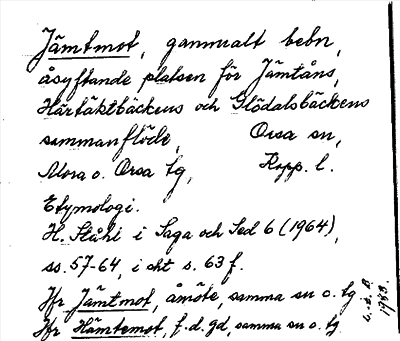 Jämtmot, gammalt bebn,
åsyftande platsen för Jämtåns,
Härtäktbäckens och Glödalsbäckens
sammanflöde, Orsa sn,
Mora o. Orsa tg, Kopp. l.
Etymologi.
H. Ståhl i Saga och Sed 6 (1964),
ss. 57-64, i okt s. 63 f.
Jfr Jämtmot, åmöte, samma sn o. tg
Jfr Hämtemot, f.d. gd, samma sn o. tg.
1983.